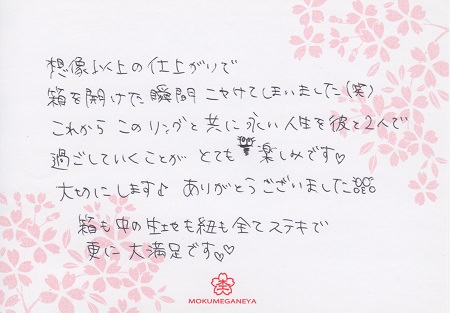 想像以上の仕上がりで
箱を開けた瞬間ニヤけてしまいました(笑)
これから このリングと共に永い人生を彼と2人で
過ごしていくことが とても楽しみです♡
大切にします♪ ありがとうございました
箱も中の生地も紐も全てステキで
更に大満足です♡♡
MOKUMEGANEYA